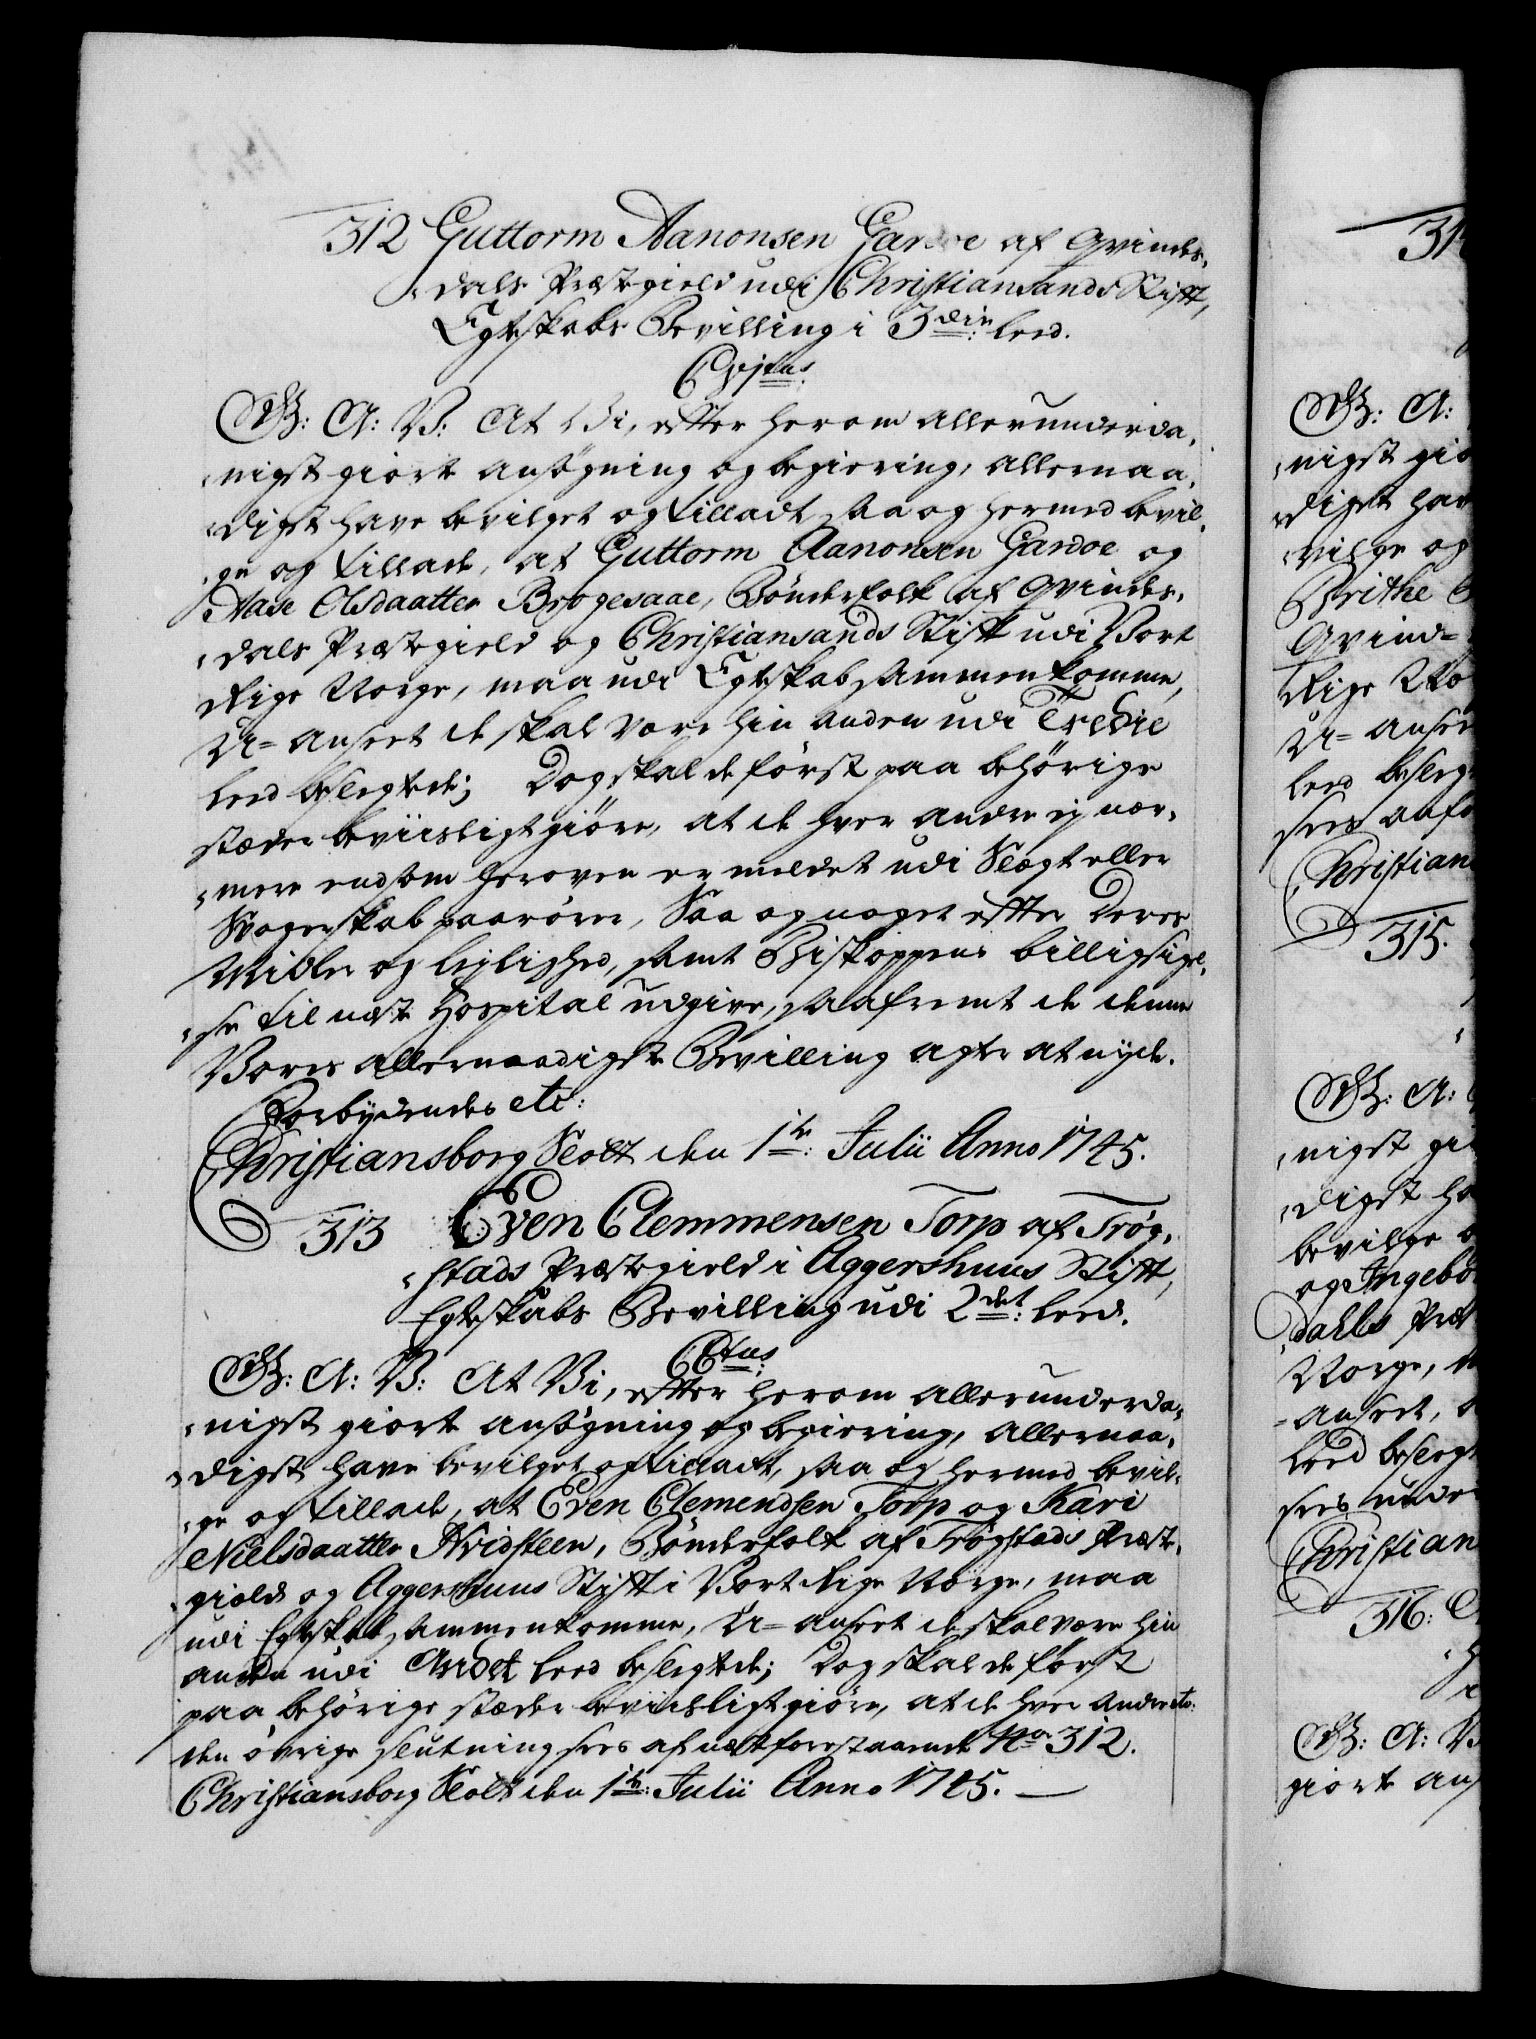 312 Guttorm Aanonsen Gardoe af Qvindes,
,dals Præstegield udi Christiansands Stift,
Egteskabs Bevilling i 3die: leed.
G: A: V: At Vi, efter herom allerunderda,
,nigst giorte ansøgning og begiering, allernaa,
,digst have bevilget og tilladt, saa og hermed bevil,
,ge og tillade, at Guttorm Aanonsen Gardoe og
Aase Olsdaatter Brogesaae, Bønderfolk af Qvindes,
,dals Præstegield og Christiansands Stift udi Vort
Rige Norge, maa udi Egteskab sammenkomme,
U=anseet de skal være hin anden udi Tredie
leed beslegtede; Dog skal de først paa behørige
stæder beviisligt giøre, at de hver andre ej nær,
,mere end som heroven er meldet udi Slegt eller
Svogerskab paarører, Saa og noget efter Deres
Midler og lejlighed, samt Biskoppens billigsigel,
,se til næste Hospital udgive, saafremt de denne
Vores allernaadigste Bevilling agter at nyde.
Forbydendes etc:
Christiansborg Slott den 1te: Julii Anno 1745.
313 Even Clemmensen Torp af Trøg,
,stads Præstegield i Aggershuus Stift,
Egteskabs Bevilling udi 2det: leed.
G: A: V: At Vi, efter herom allerunderda,
,nigst giorte ansøgning og begiering, allernaa,
,digst have bevilget og tilladt, saa og hermed bevil,
,ge og tillade, at Even Clemendsen Torp og Kari
Nielsdaatter Hvidsteen, Bønderfolk af Trøgstads Præste,
,gield og Aggershuus Stift i Vort Rige Norge, maa
udi Egteskab sammenkomme, U=anseet de skal være hin
anden udi Andet leed beslegtede; Dog skal de først
paa behørige stæder beviisligt giøre, at de hver andre etc:
den øvrige slutning sees af næstforestaaende No 312.
Christiansborg Slott den 1te: Julii Anno 1745.
31
G: A:
,nigst gio
,digst hav
,vilge og
Brithe
Qvind=
Rige No
U=ansee
leed besleg
sees anfø
Christian
315.
G: A:
,nigst gi
,digst ha
bevilge o
og Ingebo
dahls Præ
Norge, m
=anseet, a
leed beslegt
sees unde
Christian
316:
G: A: V
giorte ans